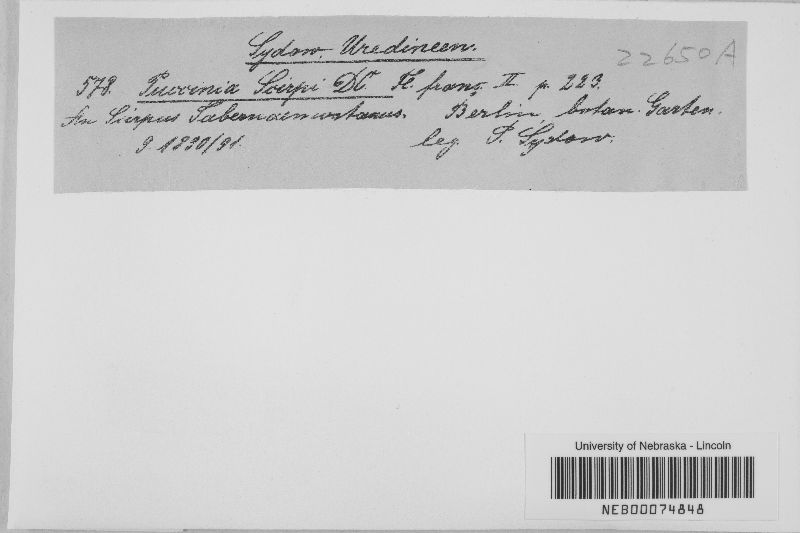 Sydow Uredineen.
22650A
578. Puccinia Scirpi DC Fl. franç. II p. 223.
An Scirpus Tabernaemontanus. Berlin, botan. Garten.
9 1890/91. leg. P. Sydow.
University of Nebraska - Lincoln
NEB00074848